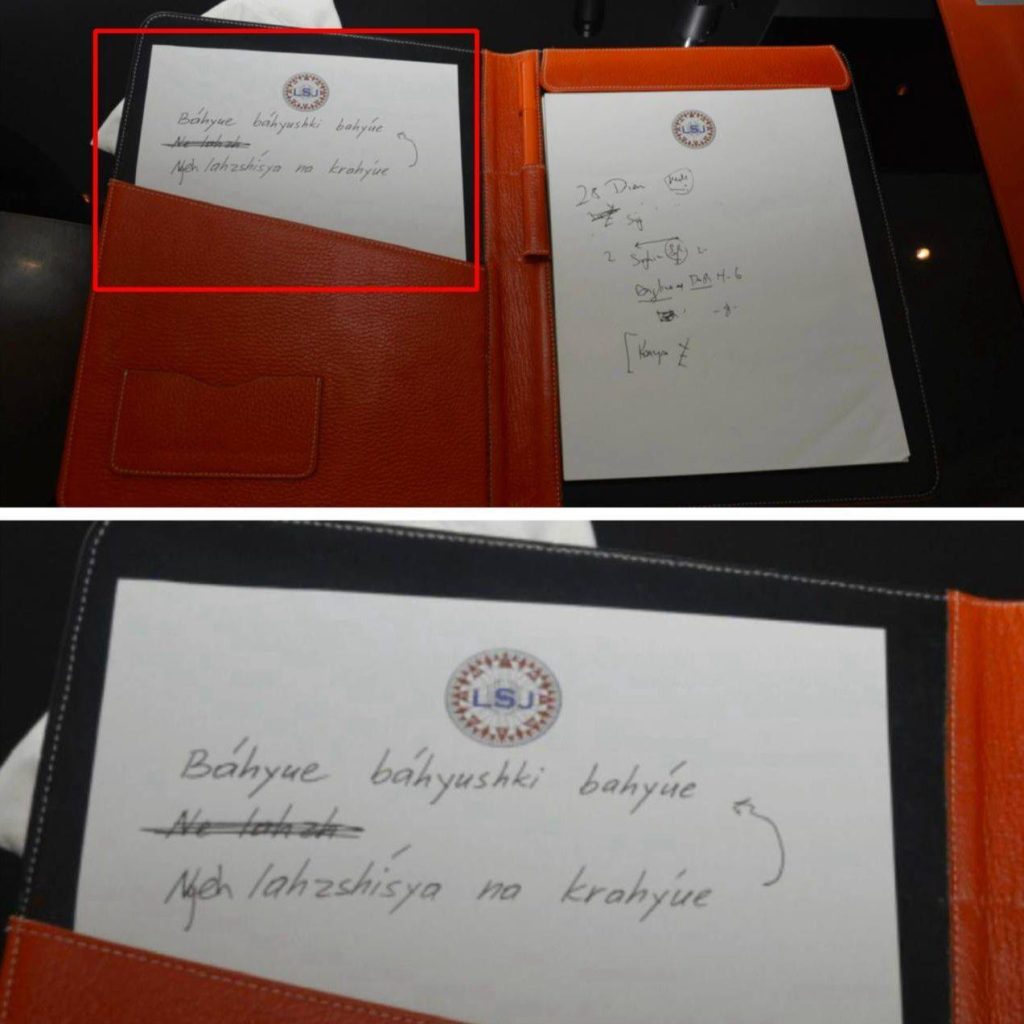 LSJ
Báhyue báhyushki bahyúe
Ne lahzh
Nyeh lahzshísya na krahyúe
LSJ
28 Dian
Sij
2
4-6
[Karya
LSJ
Báhyue báhyushki bahyúe
Ne lahzh
Nyeh lahzshísya na krahyúe